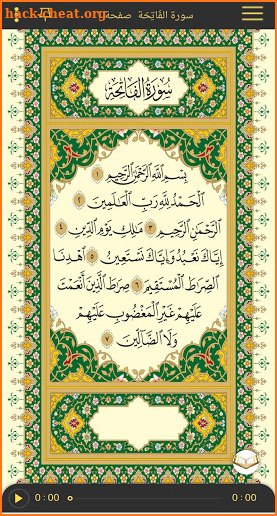 hack-cheat.org
سورة الفَاتِحَة صفحة ١
سُورَةُ الْفَاتِحَة
بِسْمِ اللَّهِ الرَّحْمَٰنِ الرَّحِيمِ ١
الْحَمْدُ لِلَّهِ رَبِّ الْعَالَمِينَ ٢
الرَّحْمَٰنِ الرَّحِيمِ ٣ مَالِكِ يَوْمِ الدِّينِ ٤
إِيَّاكَ نَعْبُدُ وَإِيَّاكَ نَسْتَعِينُ ٥ اهْدِنَا
الصِّرَاطَ الْمُسْتَقِيمَ ٦ صِرَاطَ الَّذِينَ أَنْعَمْتَ
عَلَيْهِمْ غَيْرِ الْمَغْضُوبِ عَلَيْهِمْ
وَلَا الضَّالِّينَ ٧
0:00 0:00